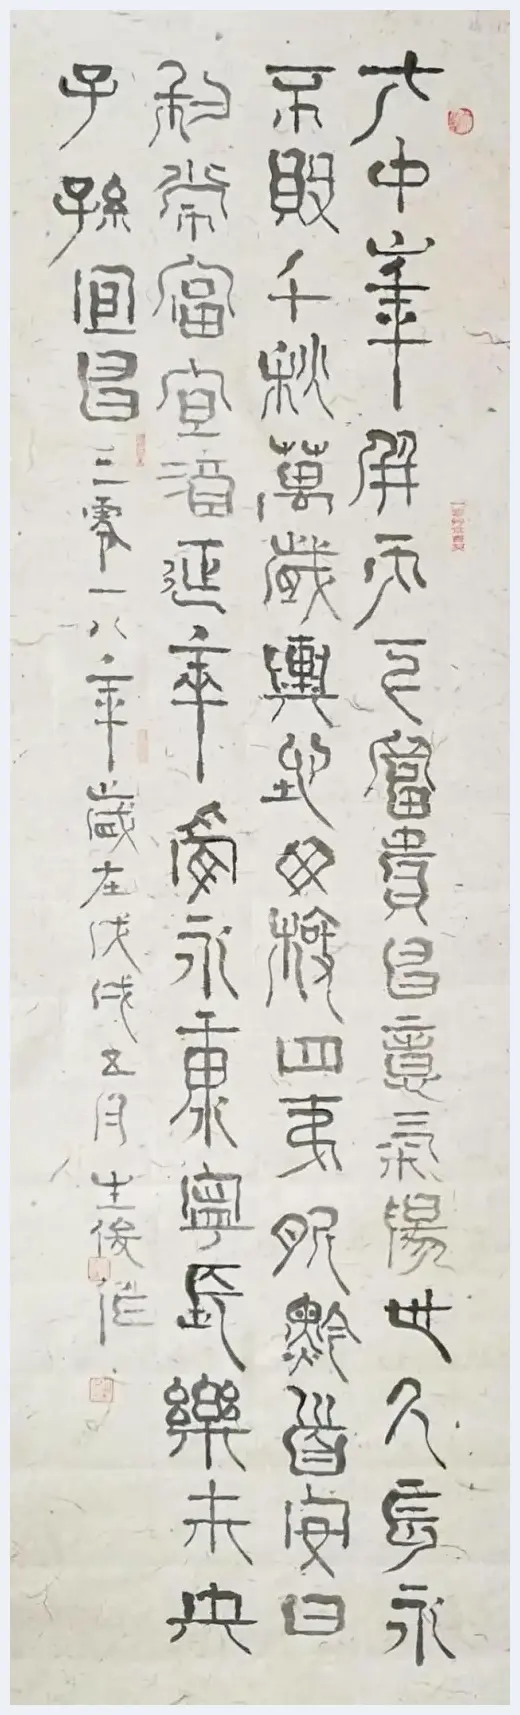 大中華并天下富貴昌意氣陽世久長永
不敗千秋萬歲與地毋極四夷服黔首安日
利常富宜酒延年壽永康寧長樂未央
子孫宜昌 二零一八年歲在戊戌五月生俊作